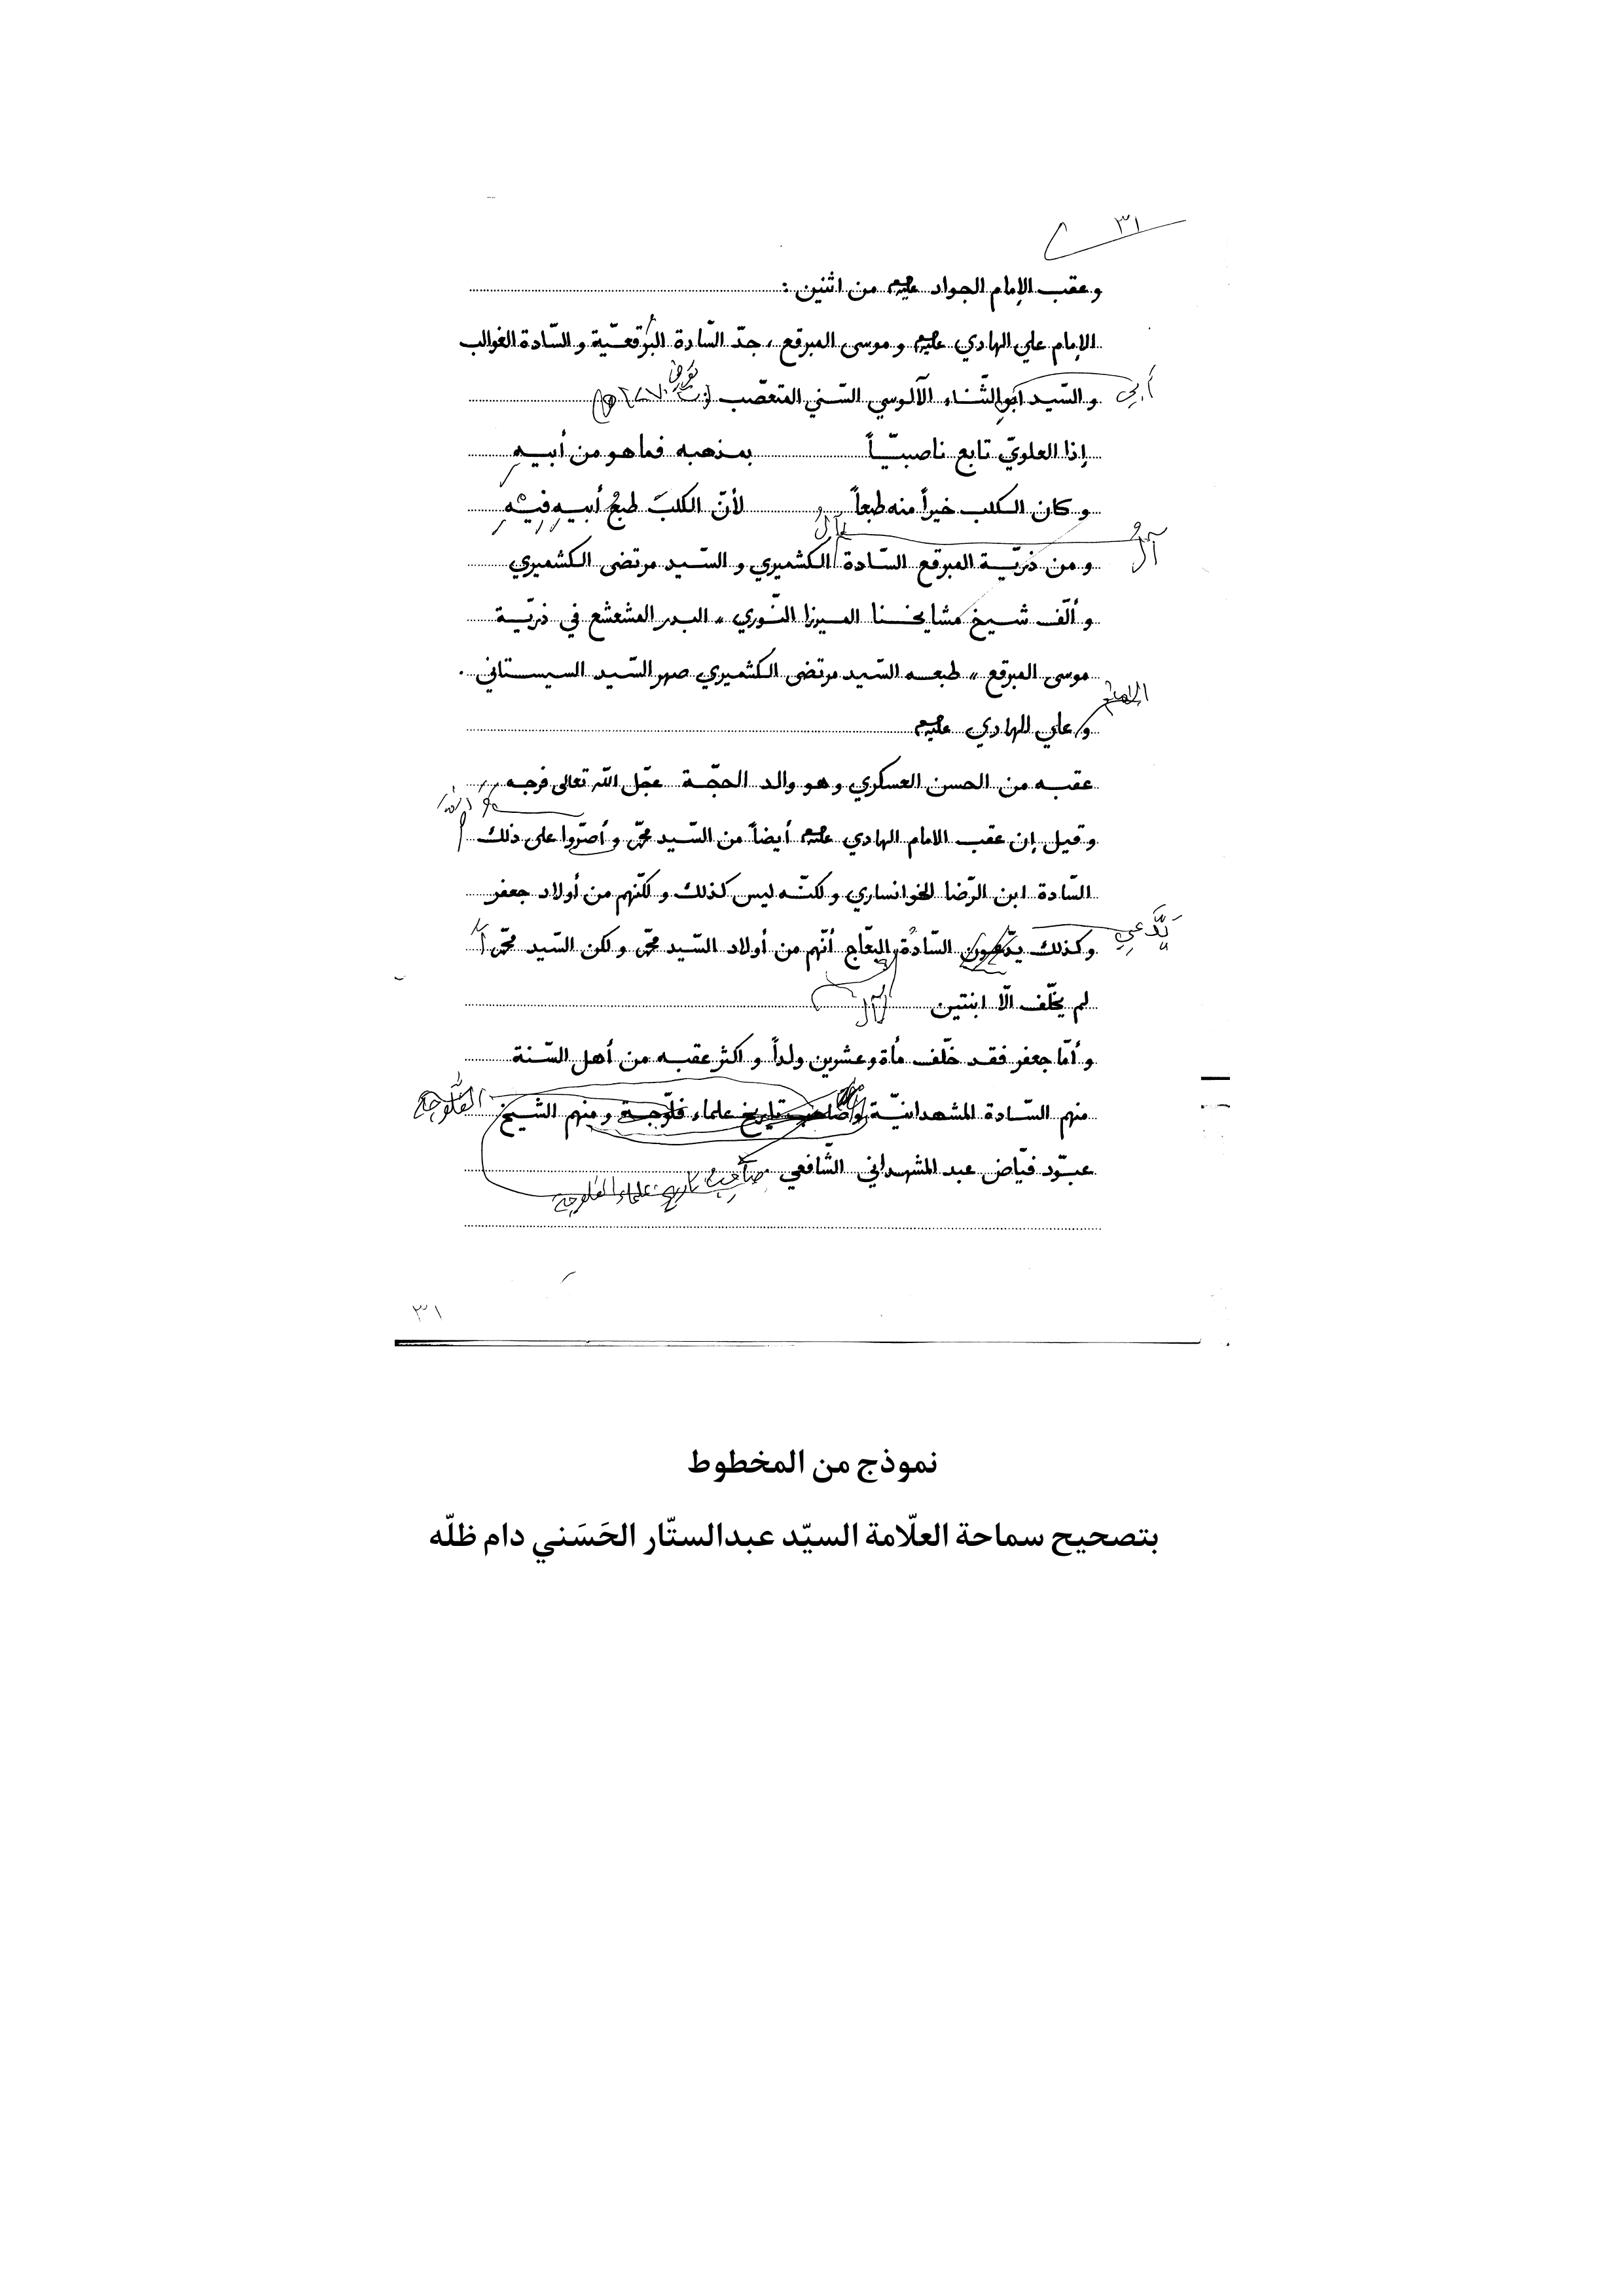 ٣١
وعقب الإمام الجواد عليه‌السلام من اثنين :
الإمام علي الهادي عليه‌السلام و موسى المبرقع ، جدّ السّادة البُرقعيّة و السّادة الغوالب
أبي
و السّيد ابوالثّناء الآلوسي السّني المتعصّب (ت ١٢٧٠ ه)
إذا العلويّ تابع ناصبيّاً بمذهبه فما هو من أبيهِ
و كان الكلب خيراً منه طبعاً لأنّ الكلبَ طبعُ أبيهِ فيهِ
آل
و من ذريّة المبرقع السّادة الكشميري و السّيد مرتضى الكشميري
و ألّف شيخ مشايخنا الميرزا النّوري « البدر المشعشع في ذريّة
موسى المبرقع » طبعه السّيد مرتضى الكشميري صهر السّيد السيستاني .
الإمام
و علي الهادي عليه‌السلام
عقبه من الحسن العسكري و هو والد الحجّة عجّل اللّٰه تعالى فرجه
وقيل إن عقب الامام الهادي عليه‌السلام أيضاً من السّيد محمّد و أصرّوا على ذلك
السّادة ابن الرّضا الخوانساري و لكنّه ليس كذلك و لكنّهم من أولاد جعفر
يدّعي
و كذلك يدّعون السّادة البعّاج أنّهم من أولاد السّيد محمّد و لكن السّيد محمّد
لم يخلّف الّا ابنتين
آل
و أمّا جعفر فقد خلّف مأة وعشرين ولداً و اكثر عقبه من أهل السّنة
منهم السّادة المشهدانيّة و صاحب تاريخ علماء فلّوجة و منهم الشيخ
الفلّوجة
عبّود فيّاض عبد المشهداني الشّافعي صاحب تاريخ علماء الفلوجة
٣١
نموذج من المخطوط
بتصحيح سماحة العلّامة السيّد عبدالستّار الحَسَني دام ظلّه